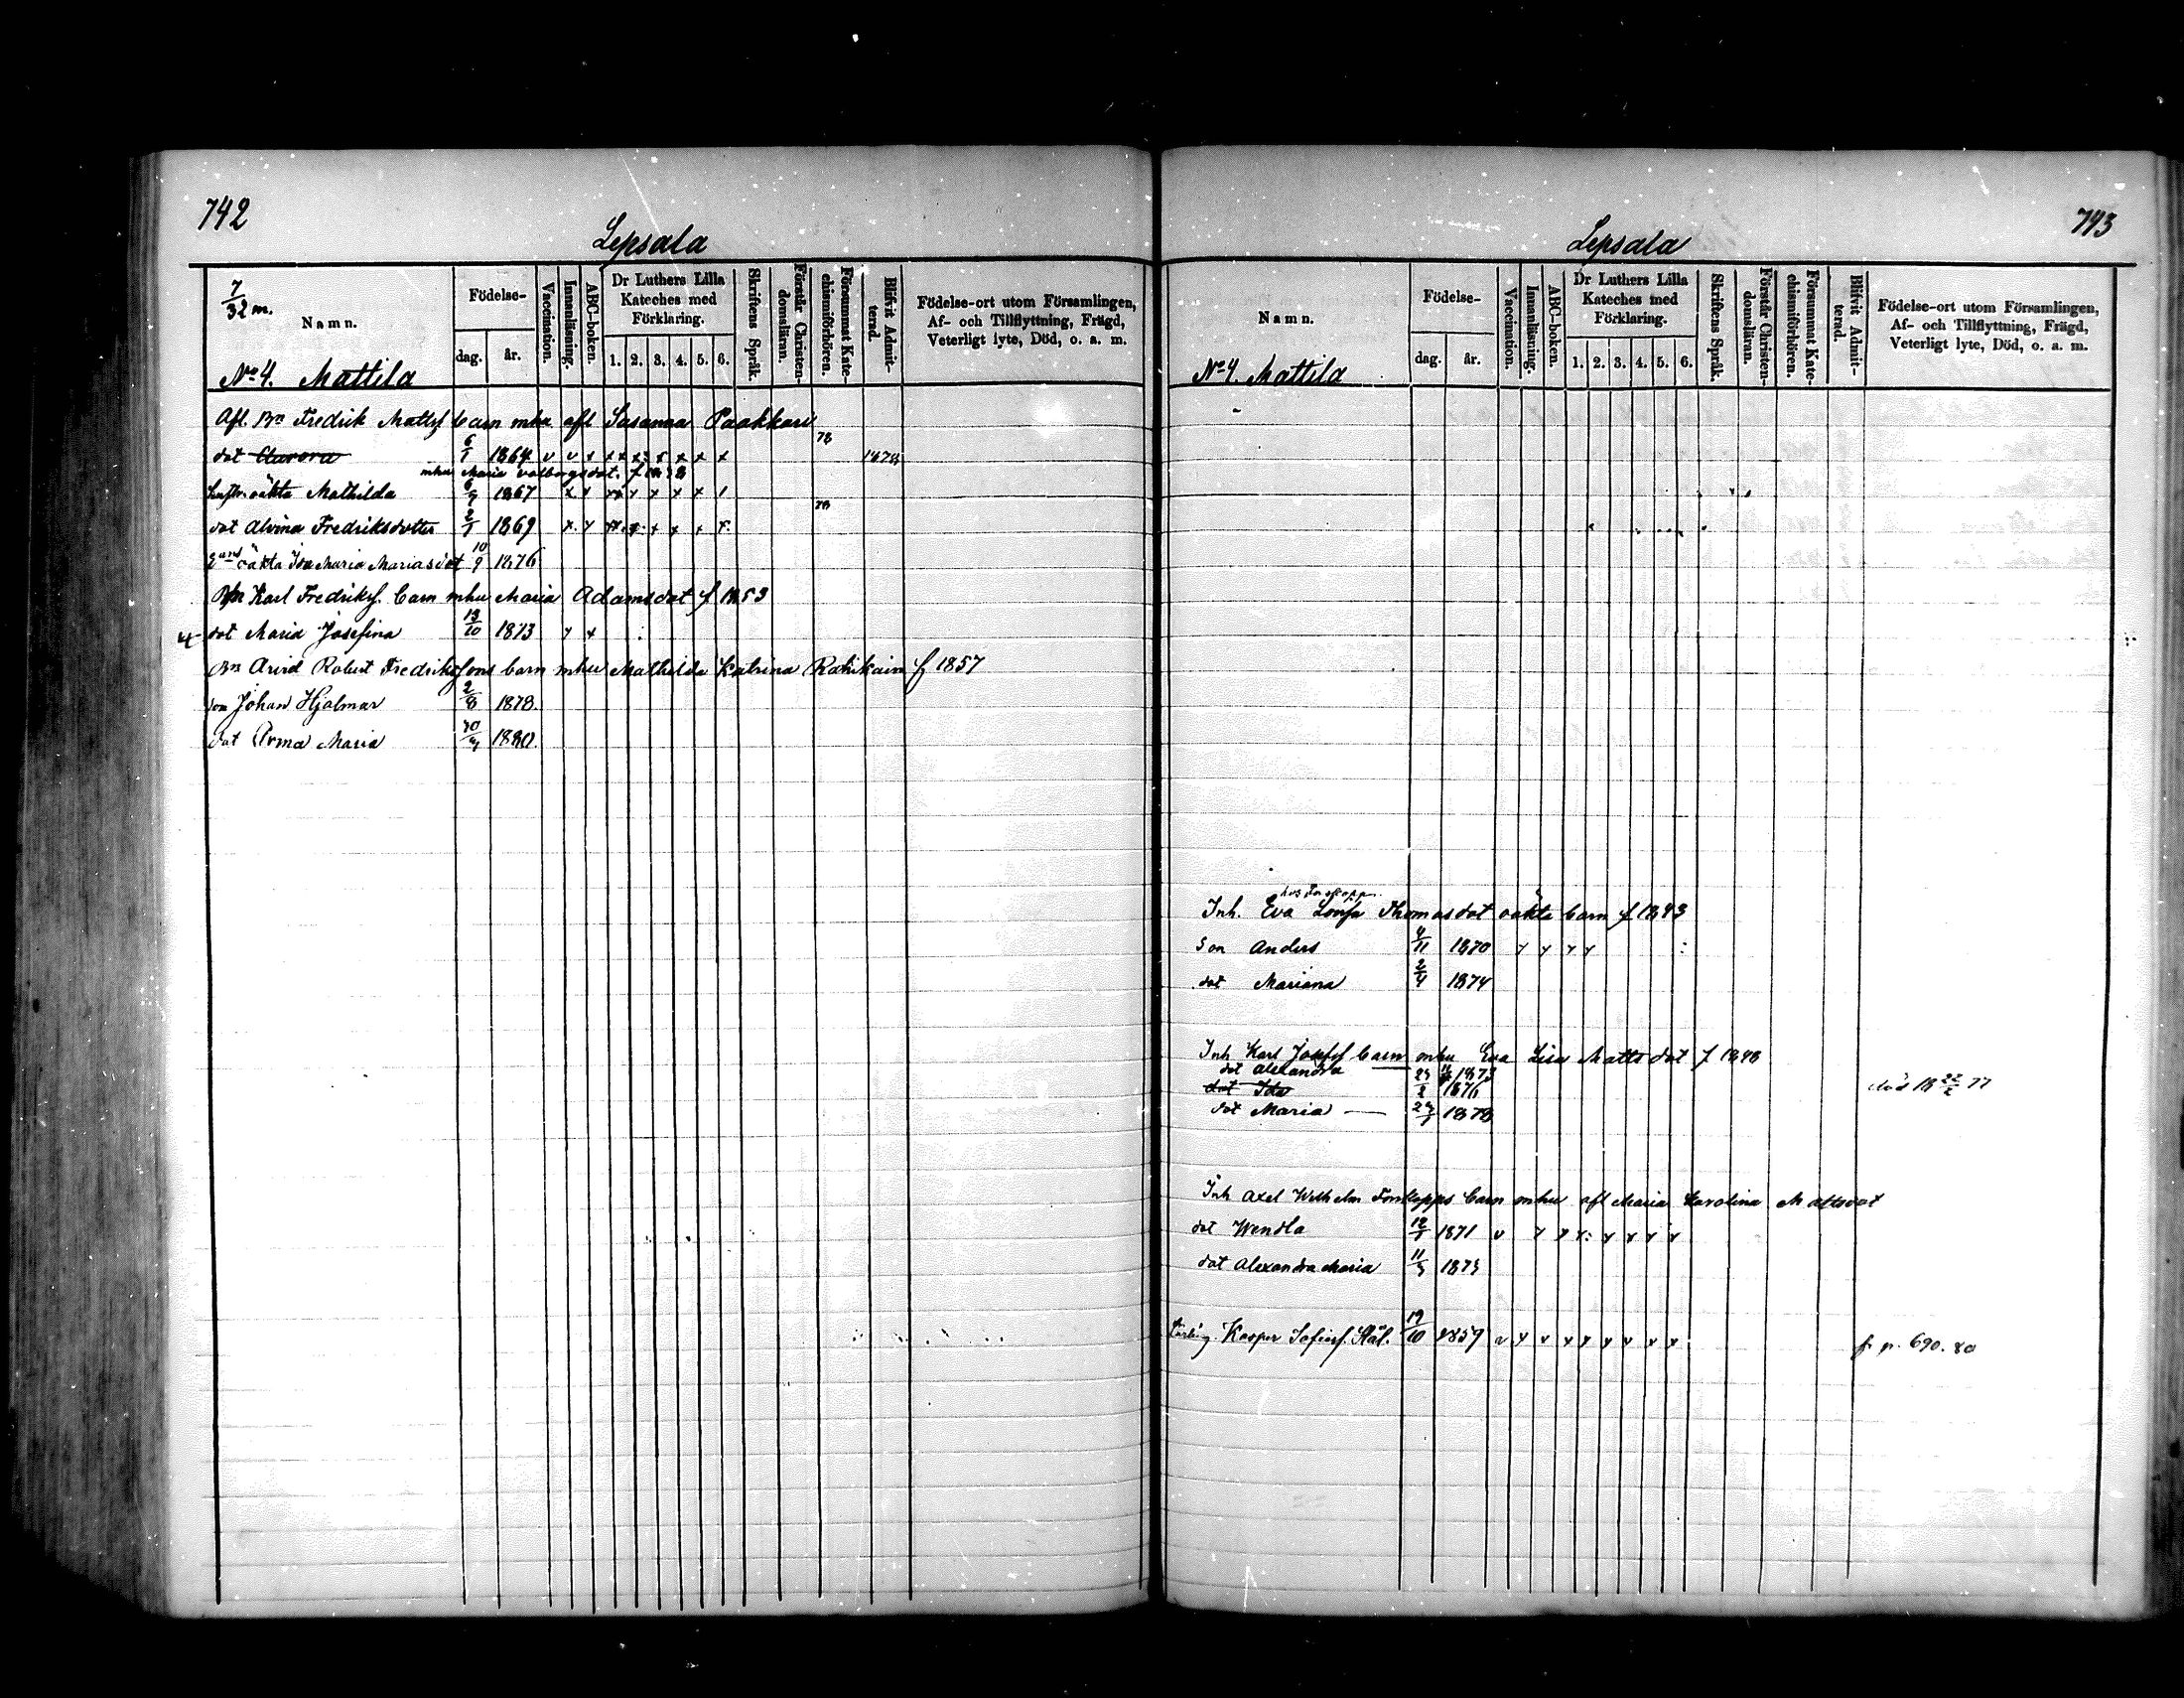 742
Lepsala
7/32 m.
Namn.
Födelse-
dag. år.
Vaccination.
Innanläsning.
ABC-boken.
Dr Luthers Lilla
Kateches med
Förklaring.
1. 2. 3. 4. 5. 6.
Skriftens Språk.
Förstår Christen-
domsläran.
Försummat Kate-
chismiförhören.
Blifvit Admit-
terad.
Födelse-ort utom Församlingen,
Af- och Tillflyttning, Frägd,
Veterligt lyte, Död, o. a. m.
No 4. Mattila
Afl. Bn Fredrik Mattsf barn mhu afl Susanna Paakkari
78
dot Aurora 6/1 1864 v v x x x x x x x 1878
mhu Maria Valborgsdot. f 1838
oäkta Mathilda 6/9 1867 x x x x x x x x 1
78
dot Alvina Fredriksdotter 2/1 1869 x x x x x x x x
oäkta Ida Maria Mariasdot 10/9 1876
Bn Karl Fredriksf. barn mhu Maria Adamsdot f 1853
4 dot Maria Josefina 13/10 1873 x x
Bn Arvid Robert Fredriksfons barn mhu Mathilda Katrina f 1857
son Johan Hjalmar 2/8 1878.
dot Maria 1880.
743
Lepsala
Namn.
Födelse-
dag. år.
Vaccination.
Innanläsning.
ABC-boken.
Dr Luthers Lilla
Kateches med
Förklaring.
1. 2. 3. 4. 5. 6.
Skriftens Språk.
Förstår Christen-
domsläran.
Försummat Kate-
chismiförhören.
Blifvit Admit-
terad.
Födelse-ort utom Församlingen,
Af- och Tillflyttning, Frägd,
Veterligt lyte, Död, o. a. m.
No 4. Mattila
Inh. Eva Lovisa Thomasdot oäkta barn f 1843
Son Anders 4/11 1870 x x x x
dot Mariana 2/4 1874
Inh Karl Josefsf barn mhu Eva Lisa Mattsdot f 1848
dot Alexandra 1873
dot Ida 1876 död 18 22/2 77
dot Maria 1878
Inh Axel Wilhelm barn mhu afl Maria Karolina Mattsdot
dot Wendla 12/1 1871 v x x x x x x x
dot Alexandra Maria 11/5 1875
Kasper Stål. 19/10 1859 v x v x x x v x x
f. p. 690. 80